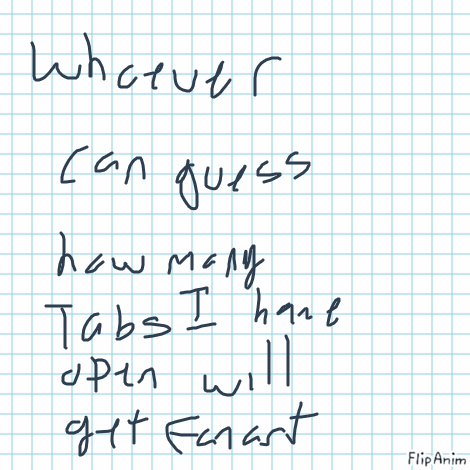 Whoever
can guess
how many
Tabs I have
open will
get Fanart
FlipAnim